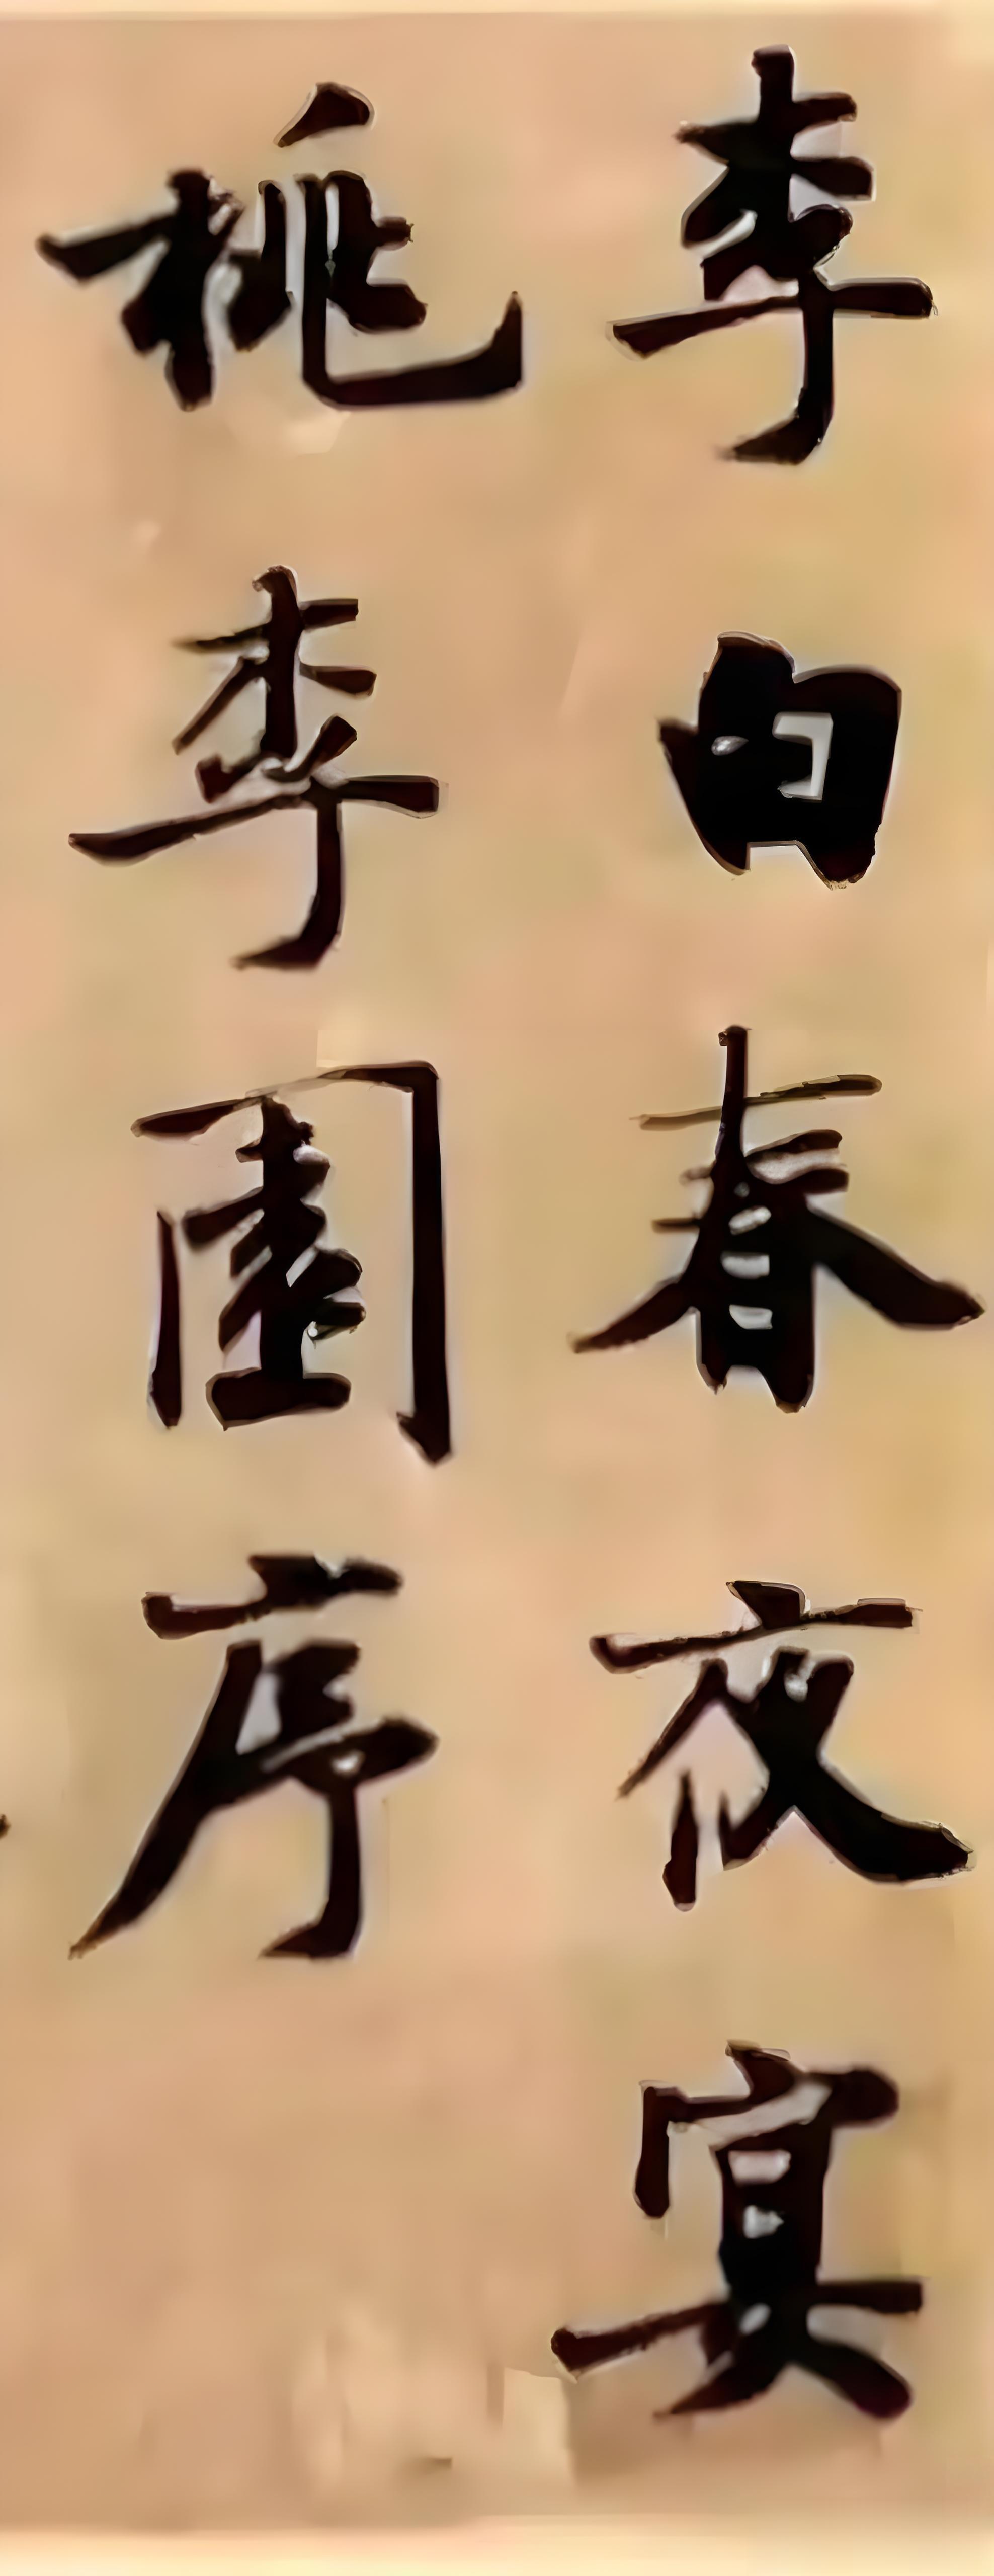 李白春夜宴
桃李園序